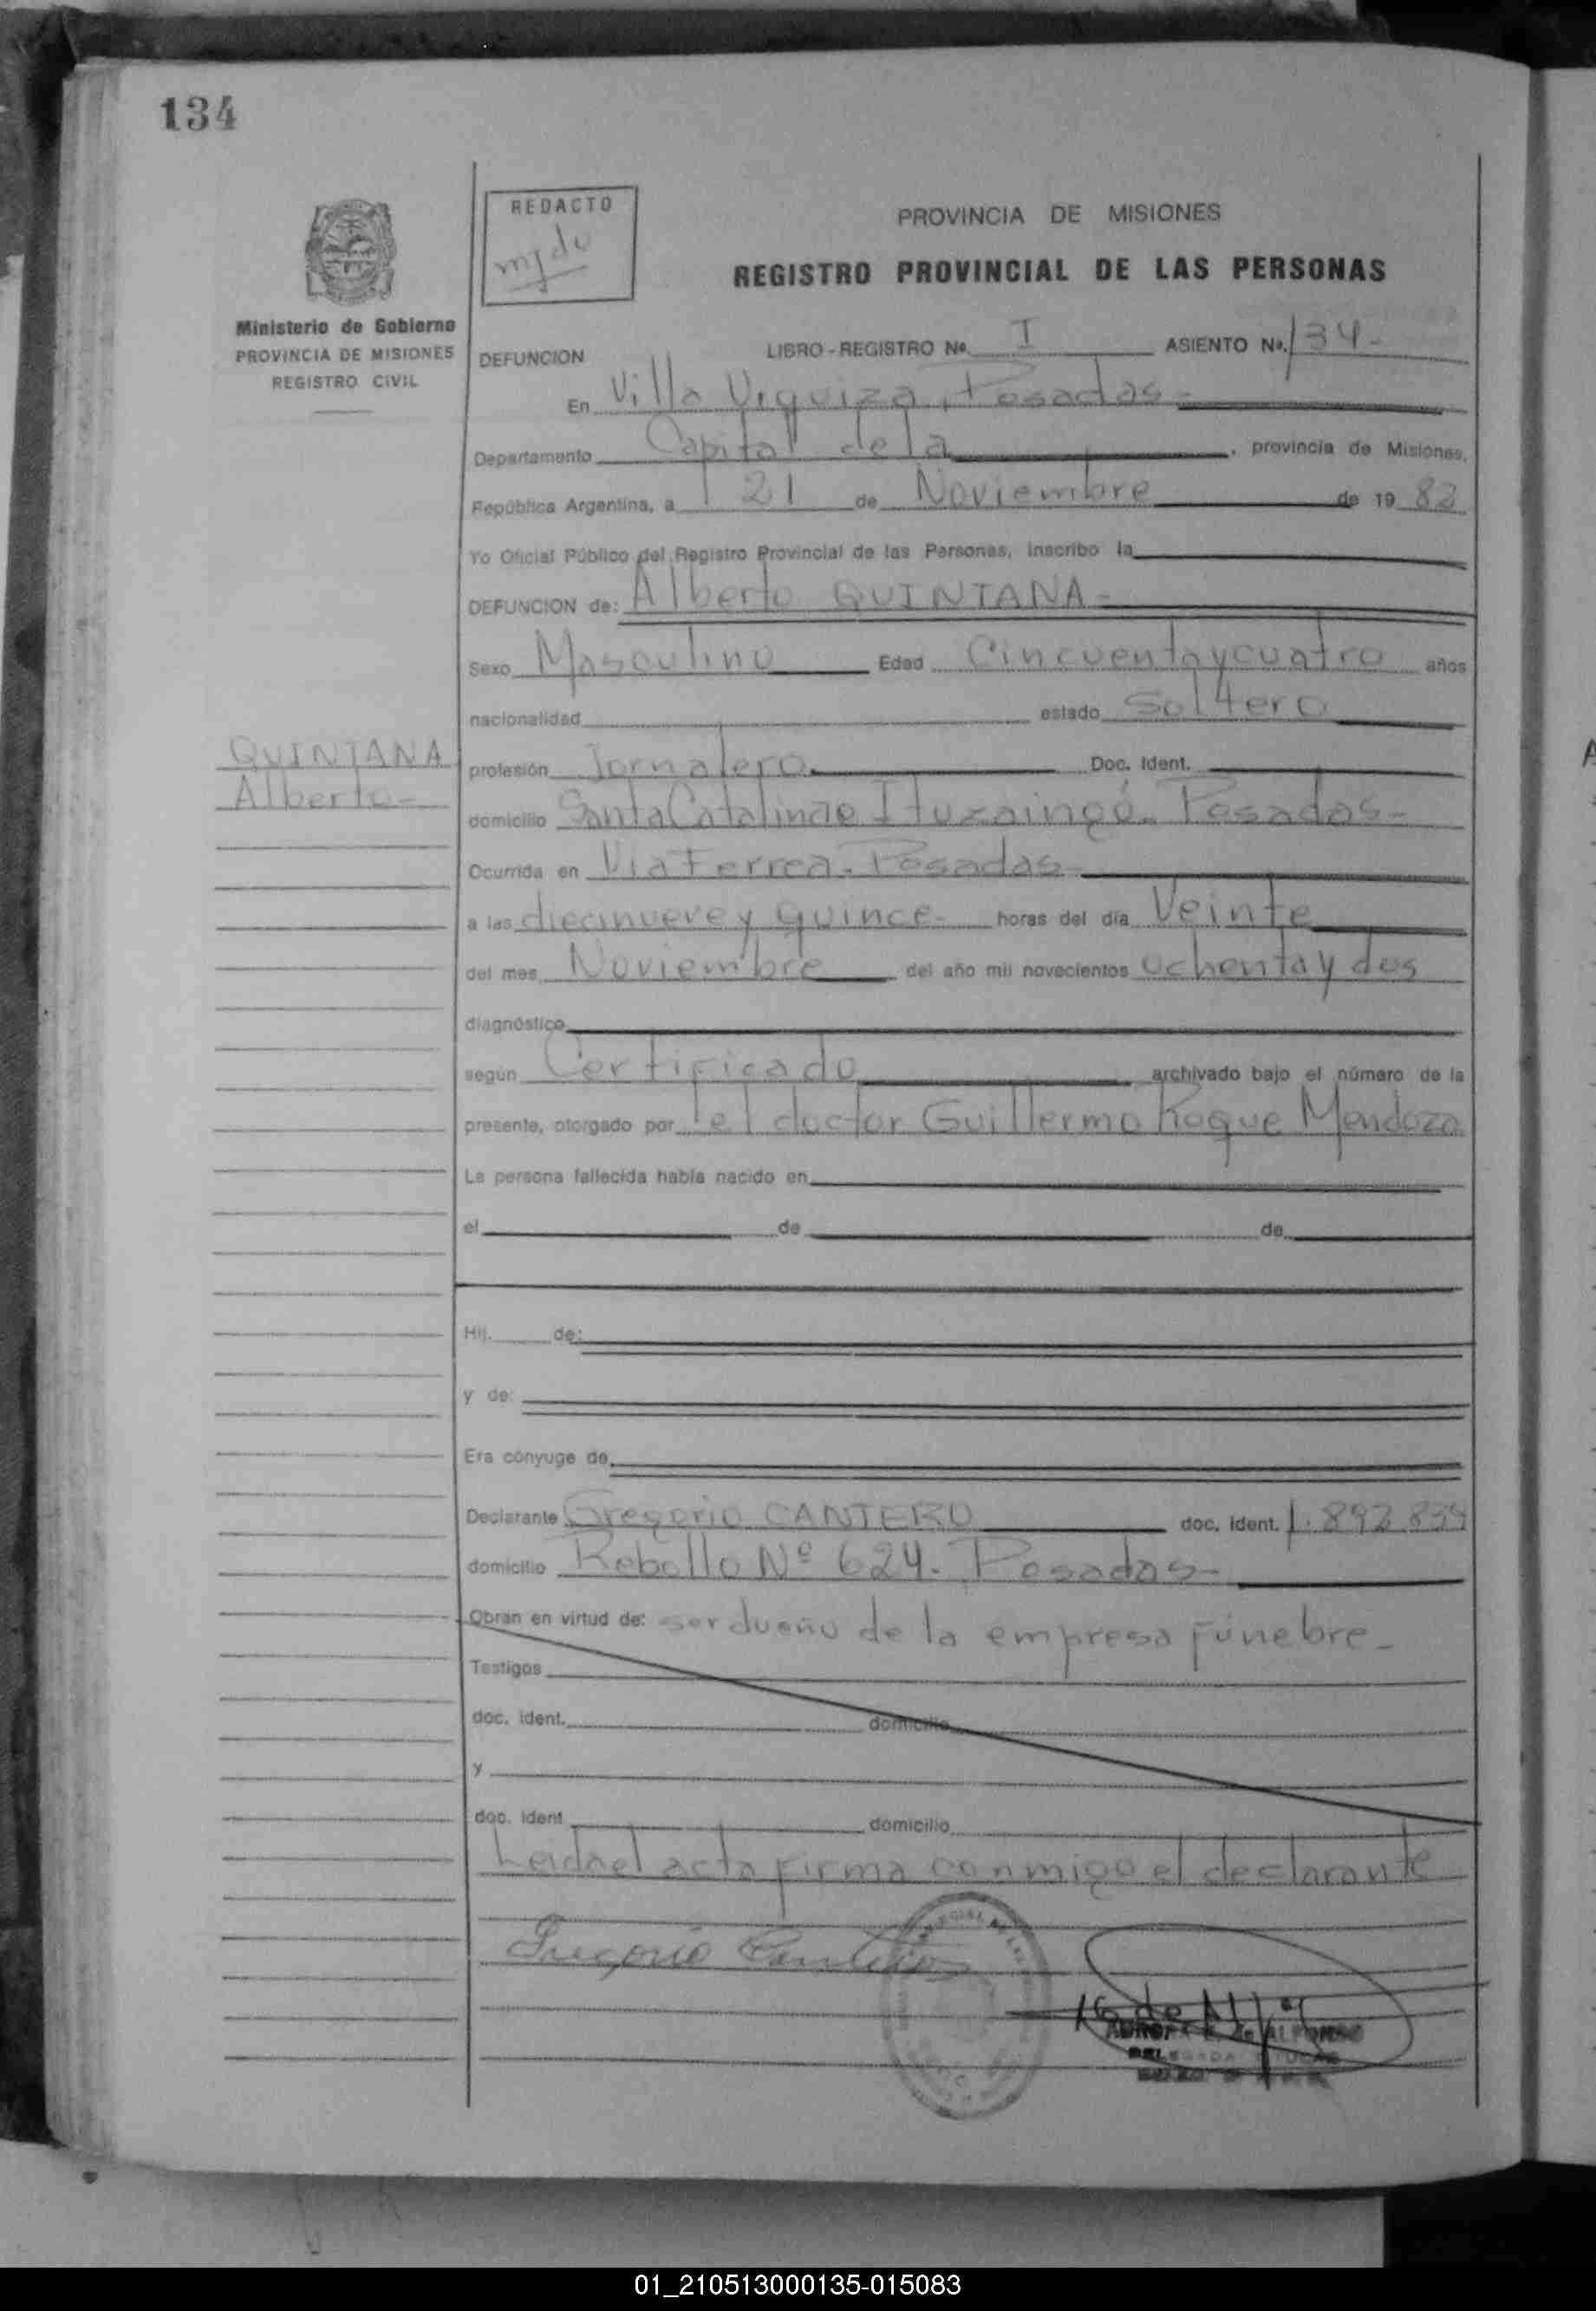 134
REDACTO
PROVINCIA DE MISIONES
REGISTRO PROVINCIAL DE LAS PERSONAS
Ministerio de Gobierno
PROVINCIA DE MISIONES
REGISTRO CIVIL
DEFUNCION LIBRO - REGISTRO Nº I ASIENTO Nº. 134-
En Villa Urquiza, Posadas-
Departamento Capital de la , provincia de Misiones,
República Argentina, a 21 de Noviembre de 19 82
Yo Oficial Público del Registro Provincial de las Personas, inscribo la
DEFUNCION de: Alberto QUINTANA-
Sexo Masculino Edad Cincuenta y cuatro años
nacionalidad estado Soltero
QUINTANA
Alberto-
profesión Jornalero Doc. Ident.
domicilio Santa Catalina e Ituzaingó. Posadas-
Ocurrida en Via Ferrea. Posadas
a las diecinueve y quince- horas del día Veinte
del mes Noviembre del año mil novecientos ochenta y dos
diagnóstico
según Certificado archivado bajo el número de la
presente, otorgado por el doctor Guillermo Roque Mendoza
La persona fallecida había nacido en
el de de
Hij. de:
y de:
Era cónyuge de
Declarante Gregorio CANTERO doc. ident. 1.892.839
domicilio Rebollo Nº 624. Posadas-
Obran en virtud de: ser dueño de la empresa fúnebre-
Testigos
doc. ident. domicilio
y
doc. ident domicilio
Leida el acta firma conmigo el declarante
Gregorio Cantero
DELEGADA
01_210513000135-015083